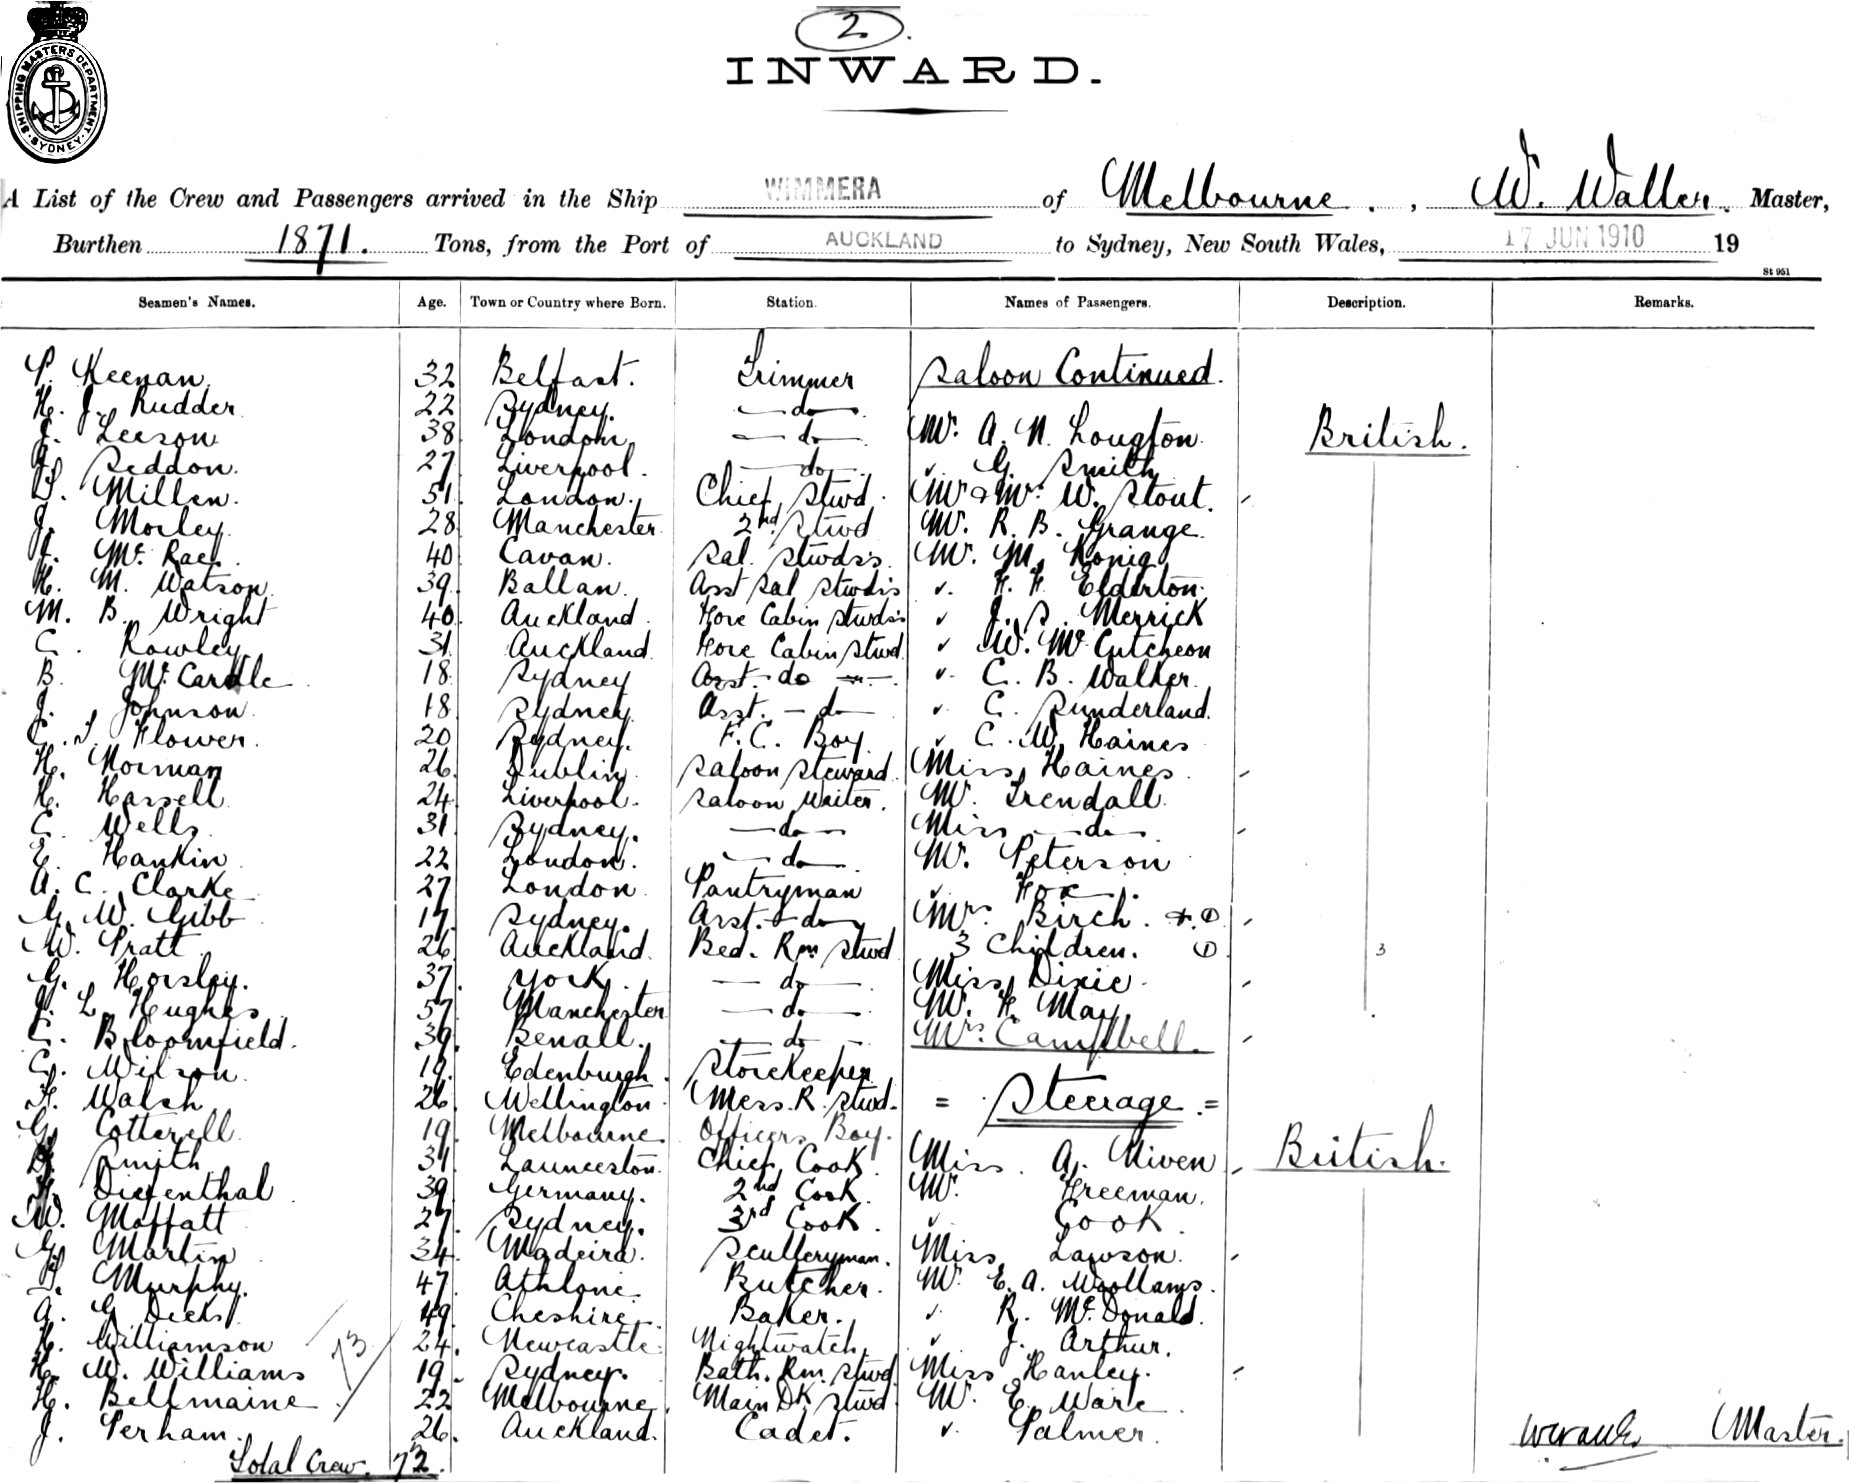 2.
INWARD.
SHIPPING MASTERS DEPARTMENT SYDNEY
A List of the Crew and Passengers arrived in the Ship WIMMERA of Melbourne., W. Waller. Master,
Burthen 1871. Tons, from the Port of AUCKLAND to Sydney, New South Wales, 17 JUN 1910 19
St 951
Seamen's Names. Age. Town or Country where Born. Station. Names of Passengers. Description. Remarks.
P. Keenan 32 Belfast. Trimmer Saloon Continued.
H. J. Rudder 22 Sydney. —do—
J. Leeson 38 London —do— Mr. A. N. Lougton British.
J. Seddon. 27 Liverpool. —do— " G. Smith
Millen. 51 London. Chief Stwd. Mr & Mrs W. Stout.
J. Morley 28 Manchester 2nd Stwd Mr. R. B. Grange
McRae. 40 Cavan. Sal. Stwdss Mr. M. Konig
H. M. Watson 39 Ballan. Asst Sal Stwdss " F. F. Elderton
M. B. Wright 40 Auckland. Fore Cabin Stwdss " J. S. Merrick
C. Rowley 31 Auckland Fore Cabin Stwd " W. McCutcheon
B. McCardle 18 Sydney Asst. do " C. B. Walker.
J. Johnson 18 Sydney. Asst. —do— " C. Sunderland.
C. J. Flower. 20 Sydney. F. C. Boy. " C. W. Haines
H. Norman 26 Dublin. Saloon Steward Miss Haines
H. Hassell 24 Liverpool. Saloon Waiter. Mr. Trendall
C. Wells. 31 Sydney. —do— Miss —do—
E. Hankin 22 London. —do— Mr. Peterson
A. C. Clarke 27 London Pantryman " Fox
G. W. Gibb 17 Sydney. Asst. —do— Mrs Birch.
W. Pratt 26 Auckland. Bed. Rm Stwd 3 Children. 3
G. Horsley. 37 York. —do— Miss Dixie
J. L. Hughes 57 Manchester —do— Mr. F. May
C. Bloomfield. 39 Benall. —do— Mrs. Campbell.
C. Wilson 19 Edenburgh. Storekeeper
F. Walsh 26 Wellington Mess. R. Stwd. = Steerage =
G. Cotterell 19 Melbourne Officers Boy.
Smith 31 Launceston. Chief Cook Miss. A. Niven British.
Diefenthal 39 Germany. 2nd Cook. Mr. Freeman.
W. Moffatt 27 Sydney. 3rd Cook " Cook
G. Martin 34 Madeira. Sculleryman. Miss Lawson.
Murphy. 47 Athlone. Butcher. Mr. E. A. Woollams.
A. G. Dicks 49 Cheshire. Baker. " R. McDonald.
H. Williamson 24. Newcastle. Nightwatch " J. Arthur.
H. W. Williams 19. Sydney. Bath. Rm. Stwd Miss Hanley.
H. Bellmaine 22 Melbourne. Main Dk Stwd Mr. E. Ware
J. Perham. 26. Auckland. Cadet. " Palmer.
73
Total Crew. 72. Master.